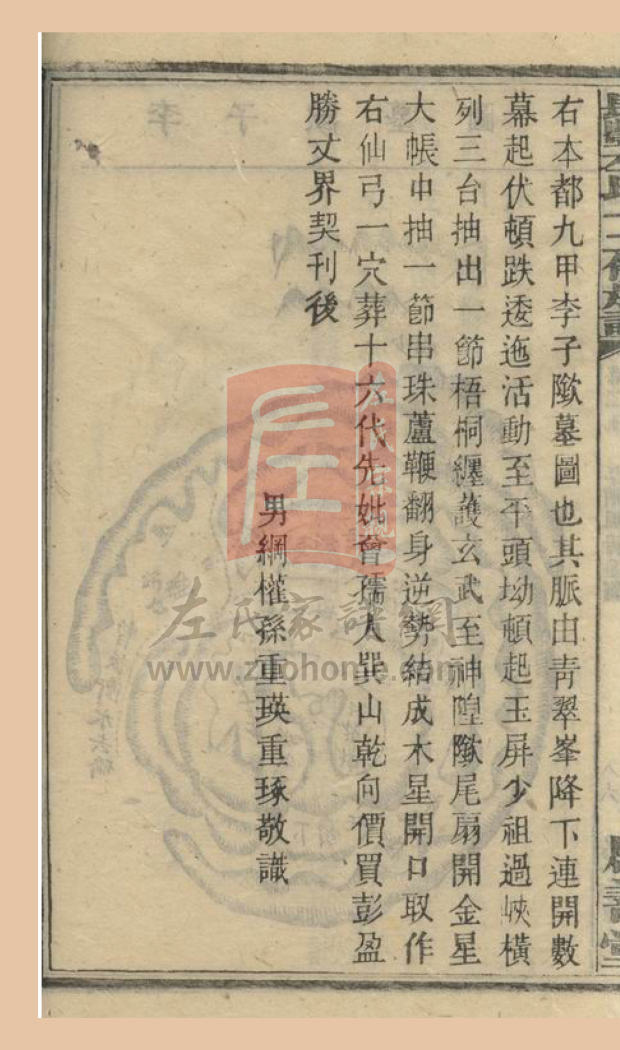 右本都九甲李子墈墓圖也其脈由青翠峯降下連開數
幕起伏頓跌逶迤活動至平頭坳頓起玉屏少祖過峽橫
列三台抽出一節梧桐纏護玄武至神隍墈尾扇開金星
大帳中抽一節串珠蘆鞭翻身逆勢結成木星開口取作
右仙弓一穴葬十六代先妣會孺人巽山乾向價買彭盈
勝丈界契刊後
男綱權孫重瑛重琢敬識
左氏家譜網
www.zuohome.com